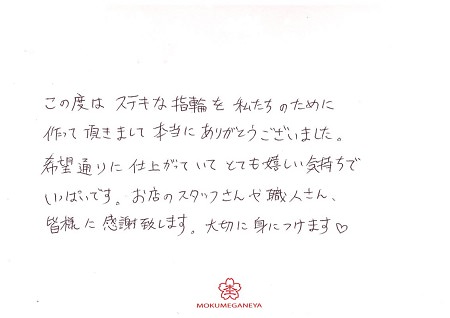 この度は ステキな指輪を 私たちのために
作って頂きまして本当にありがとうございました。
希望通りに仕上がっていてとても嬉しい気持ちで
いっぱいです。お店のスタッフさんや職人さん、
皆様に感謝致します。大切に身につけます♡
MOKUMEGANEYA